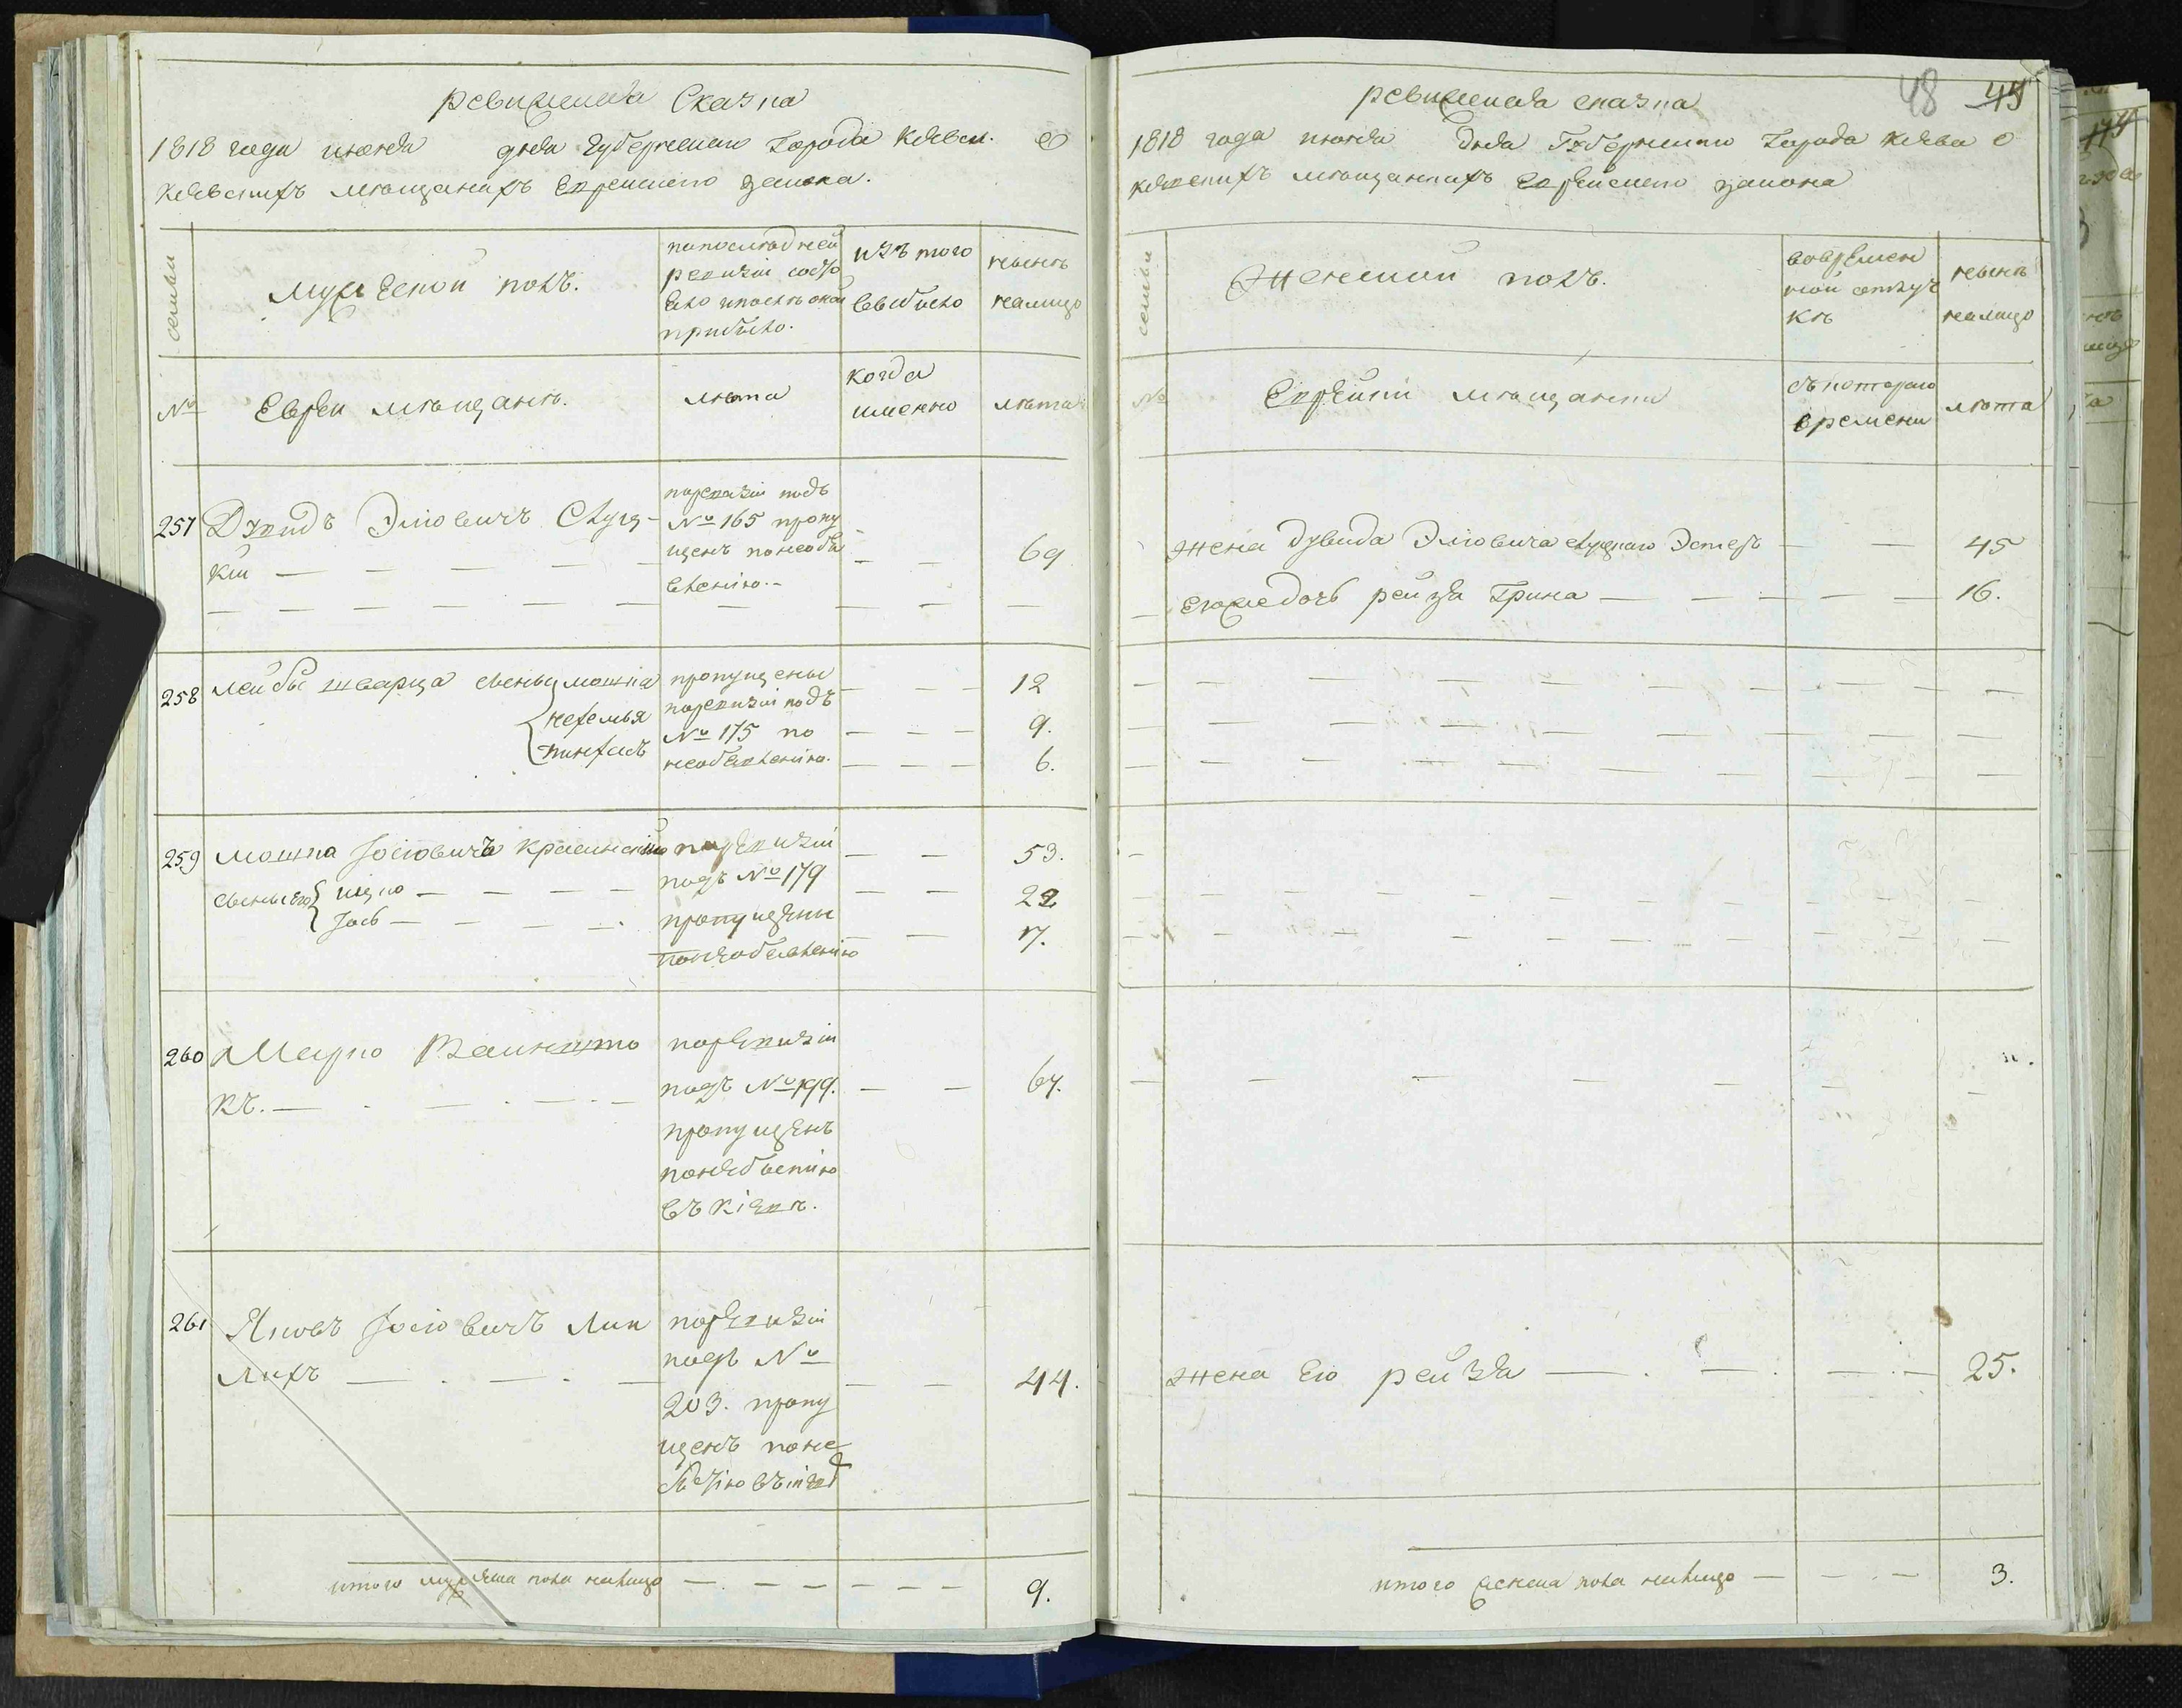 ревизская Сказка
1818 года июня дня Губернскаго Города Киева. о
Киевскихъ мѣщанахъ Еврейскаго закона.
семьи
Мужеской полъ.
по последней
ревизіи состо
яло и после оной
прибыло.
изъ того
выбыло
ныне
налицо
№
Евреи мѣщане.
лѣта
когда
именно
лѣта
257
Дувидъ Эліовичъ Слуц-
кій
по ревизіи подъ
№ 165 пропу
щенъ по необъя
вленію.
69
258
Лейбы Шварца сыновья Мошка
Нехемья
Пинхасъ
пропущены
по ревизіи подъ
№ 175 по
необъявленію.
12
9.
6.
259
Мошка Іосіовичъ Красинскій
сыновья его
Ицко
Іось
по ревизіи
подъ № 179
пропущены
по необъявленію
53.
22
17.
260
Меръко Ваништо
къ.
по ревизіи
подъ № 199.
пропущенъ
по небытію
въ Кіевѣ.
67.
261
Яковъ Іосіовичъ Лип
лихъ
по ревизіи
подъ №
203. пропу
щенъ по не
44.
итого мужеска пола налицо
9.
48 45
ревизская сказка
1818 года июня дня Губернскаго Города Киева о
Киевскихъ мѣщанкахъ Еврейскаго закона
семьи
Женской полъ.
во времен
ной отлуч
кѣ
ныне
налицо
№
Еврейки мѣщанки
съ котораго
времени
лѣта
жена Дувида Эліовича Слуцкаго Эстеръ
45
его же дочь Рейза Грина
16.
жена его Рейза
25.
итого женска пола налицо
3.